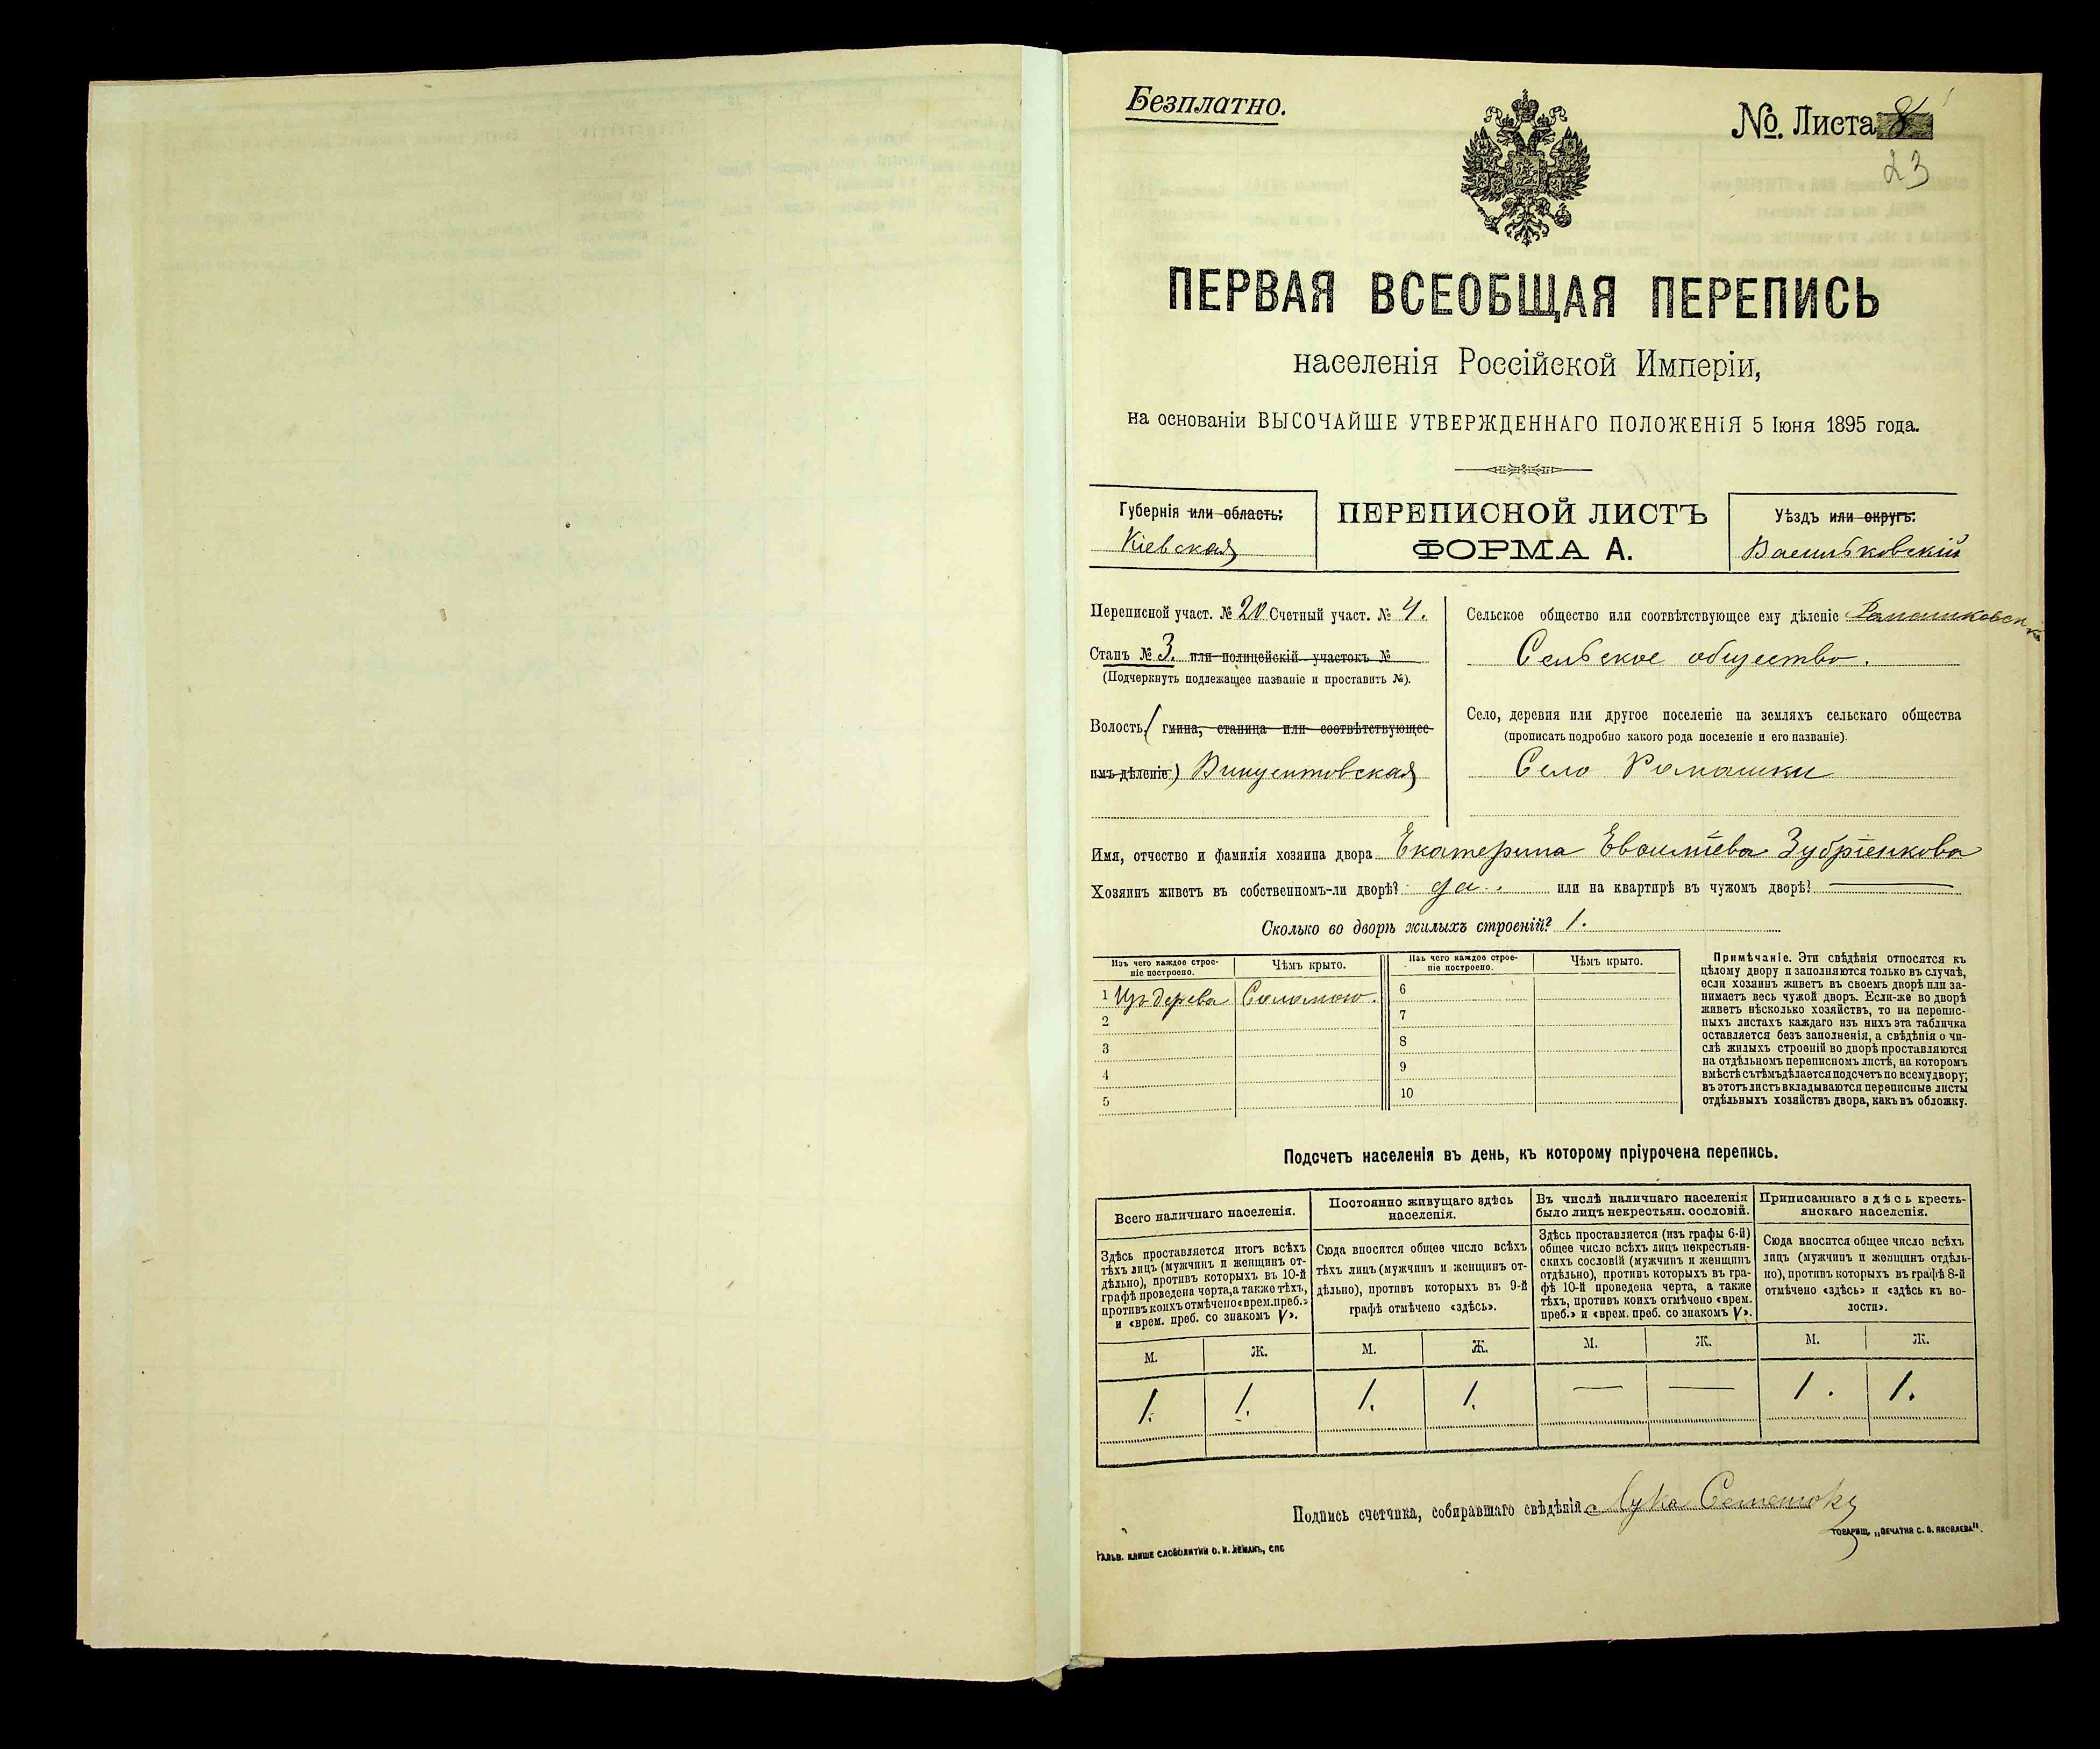 Безплатно.
№. Листа 8
23
ПЕРВАЯ ВСЕОБЩАЯ ПЕРЕПИСЬ
населенія Россійской Имперіи,
на основаніи ВЫСОЧАЙШЕ УТВЕРЖДЕННАГО ПОЛОЖЕНІЯ 5 Іюня 1895 года.
Губернія или область:
Кіевская
ПЕРЕПИСНОЙ ЛИСТЪ
ФОРМА А.
Уѣздъ или округъ:
Васильковскій
Переписной участ. № 20 Счетный участ. № 4.
Станъ № 3. или полицейскій участокъ №
(Подчеркнуть подлежащее названіе и проставить №).
Волость, (гмина, станица или соотвѣтствующее
имъ дѣленіе) Винцентовская
Сельское общество или соотвѣтствующее ему дѣленіе Ромашковск
Сельское общество.
Село, деревня или другое поселеніе на земляхъ сельскаго общества
(прописать подробно какого рода поселеніе и его названіе).
Село Ромашки
Имя, отчество и фамилія хозяина двора Екатерина Зубріенкова
Хозяинъ живетъ въ собственномъ-ли дворѣ? да. или на квартирѣ въ чужомъ дворѣ? —
Сколько во дворѣ жилыхъ строеній? 1.
Изъ чего каждое строе-
ніе построено.
Чѣмъ крыто.
Изъ чего каждое строе-
ніе построено.
Чѣмъ крыто.
1 Изъ дерева Соломою. 6
2 7
3 8
4 9
5 10
Примѣчаніе. Эти свѣдѣнія относятся къ
цѣлому двору и заполняются только въ случаѣ,
если хозяинъ живетъ въ своемъ дворѣ или за-
нимаетъ весь чужой дворъ. Если-же во дворѣ
живетъ нѣсколько хозяйствъ, то на перепис-
ныхъ листахъ каждаго изъ нихъ эта табличка
оставляется безъ заполненія, а свѣдѣнія о чи-
слѣ жилыхъ строеній во дворѣ проставляются
на отдѣльномъ переписномъ листѣ, на которомъ
вмѣстѣ съ тѣмъ дѣлается подсчетъ по всему двору;
въ этотъ листъ вкладываются переписные листы
отдѣльныхъ хозяйствъ двора, какъ въ обложку.
Подсчетъ населенія въ день, къ которому пріурочена перепись.
Всего наличнаго населенія.
Постоянно живущаго здѣсь
населенія.
Въ числѣ наличнаго населенія
было лицъ некрестьян. сословій.
Приписаннаго здѣсь кресть-
янскаго населенія.
Здѣсь проставляется итогъ всѣхъ
тѣхъ лицъ (мужчинъ и женщинъ от-
дѣльно), противъ которыхъ въ 10-й
графѣ проведена черта, а также тѣхъ,
противъ коихъ отмѣчено «врем. преб.»
и «врем. преб. со знакомъ V».
Сюда вносится общее число всѣхъ
тѣхъ лицъ (мужчинъ и женщинъ от-
дѣльно), противъ которыхъ въ 9-й
графѣ отмѣчено «здѣсь».
Здѣсь проставляется (изъ графы 6-й)
общее число всѣхъ лицъ некрестьян-
скихъ сословій (мужчинъ и женщинъ
отдѣльно), противъ которыхъ въ гра-
фѣ 10-й проведена черта, а также
тѣхъ, противъ коихъ отмѣчено «врем.
преб.» и «врем. преб. со знакомъ V».
Сюда вносится общее число всѣхъ
лицъ (мужчинъ и женщинъ отдѣль-
но), противъ которыхъ въ графѣ 8-й
отмѣчено «здѣсь» и «здѣсь къ во-
лости».
М. Ж. М. Ж. М. Ж. М. Ж.
1. 1. 1. 1. — — 1. 1.
Подпись счетчика, собиравшаго свѣдѣнія Лука
ТОВАРИЩ. „ПЕЧАТНЯ С. П. ЯКОВЛЕВА".
ГАЛЬВ. КЛИШЕ СЛОВОЛИТНИ О. И. ЛЕМАНЪ, СПБ